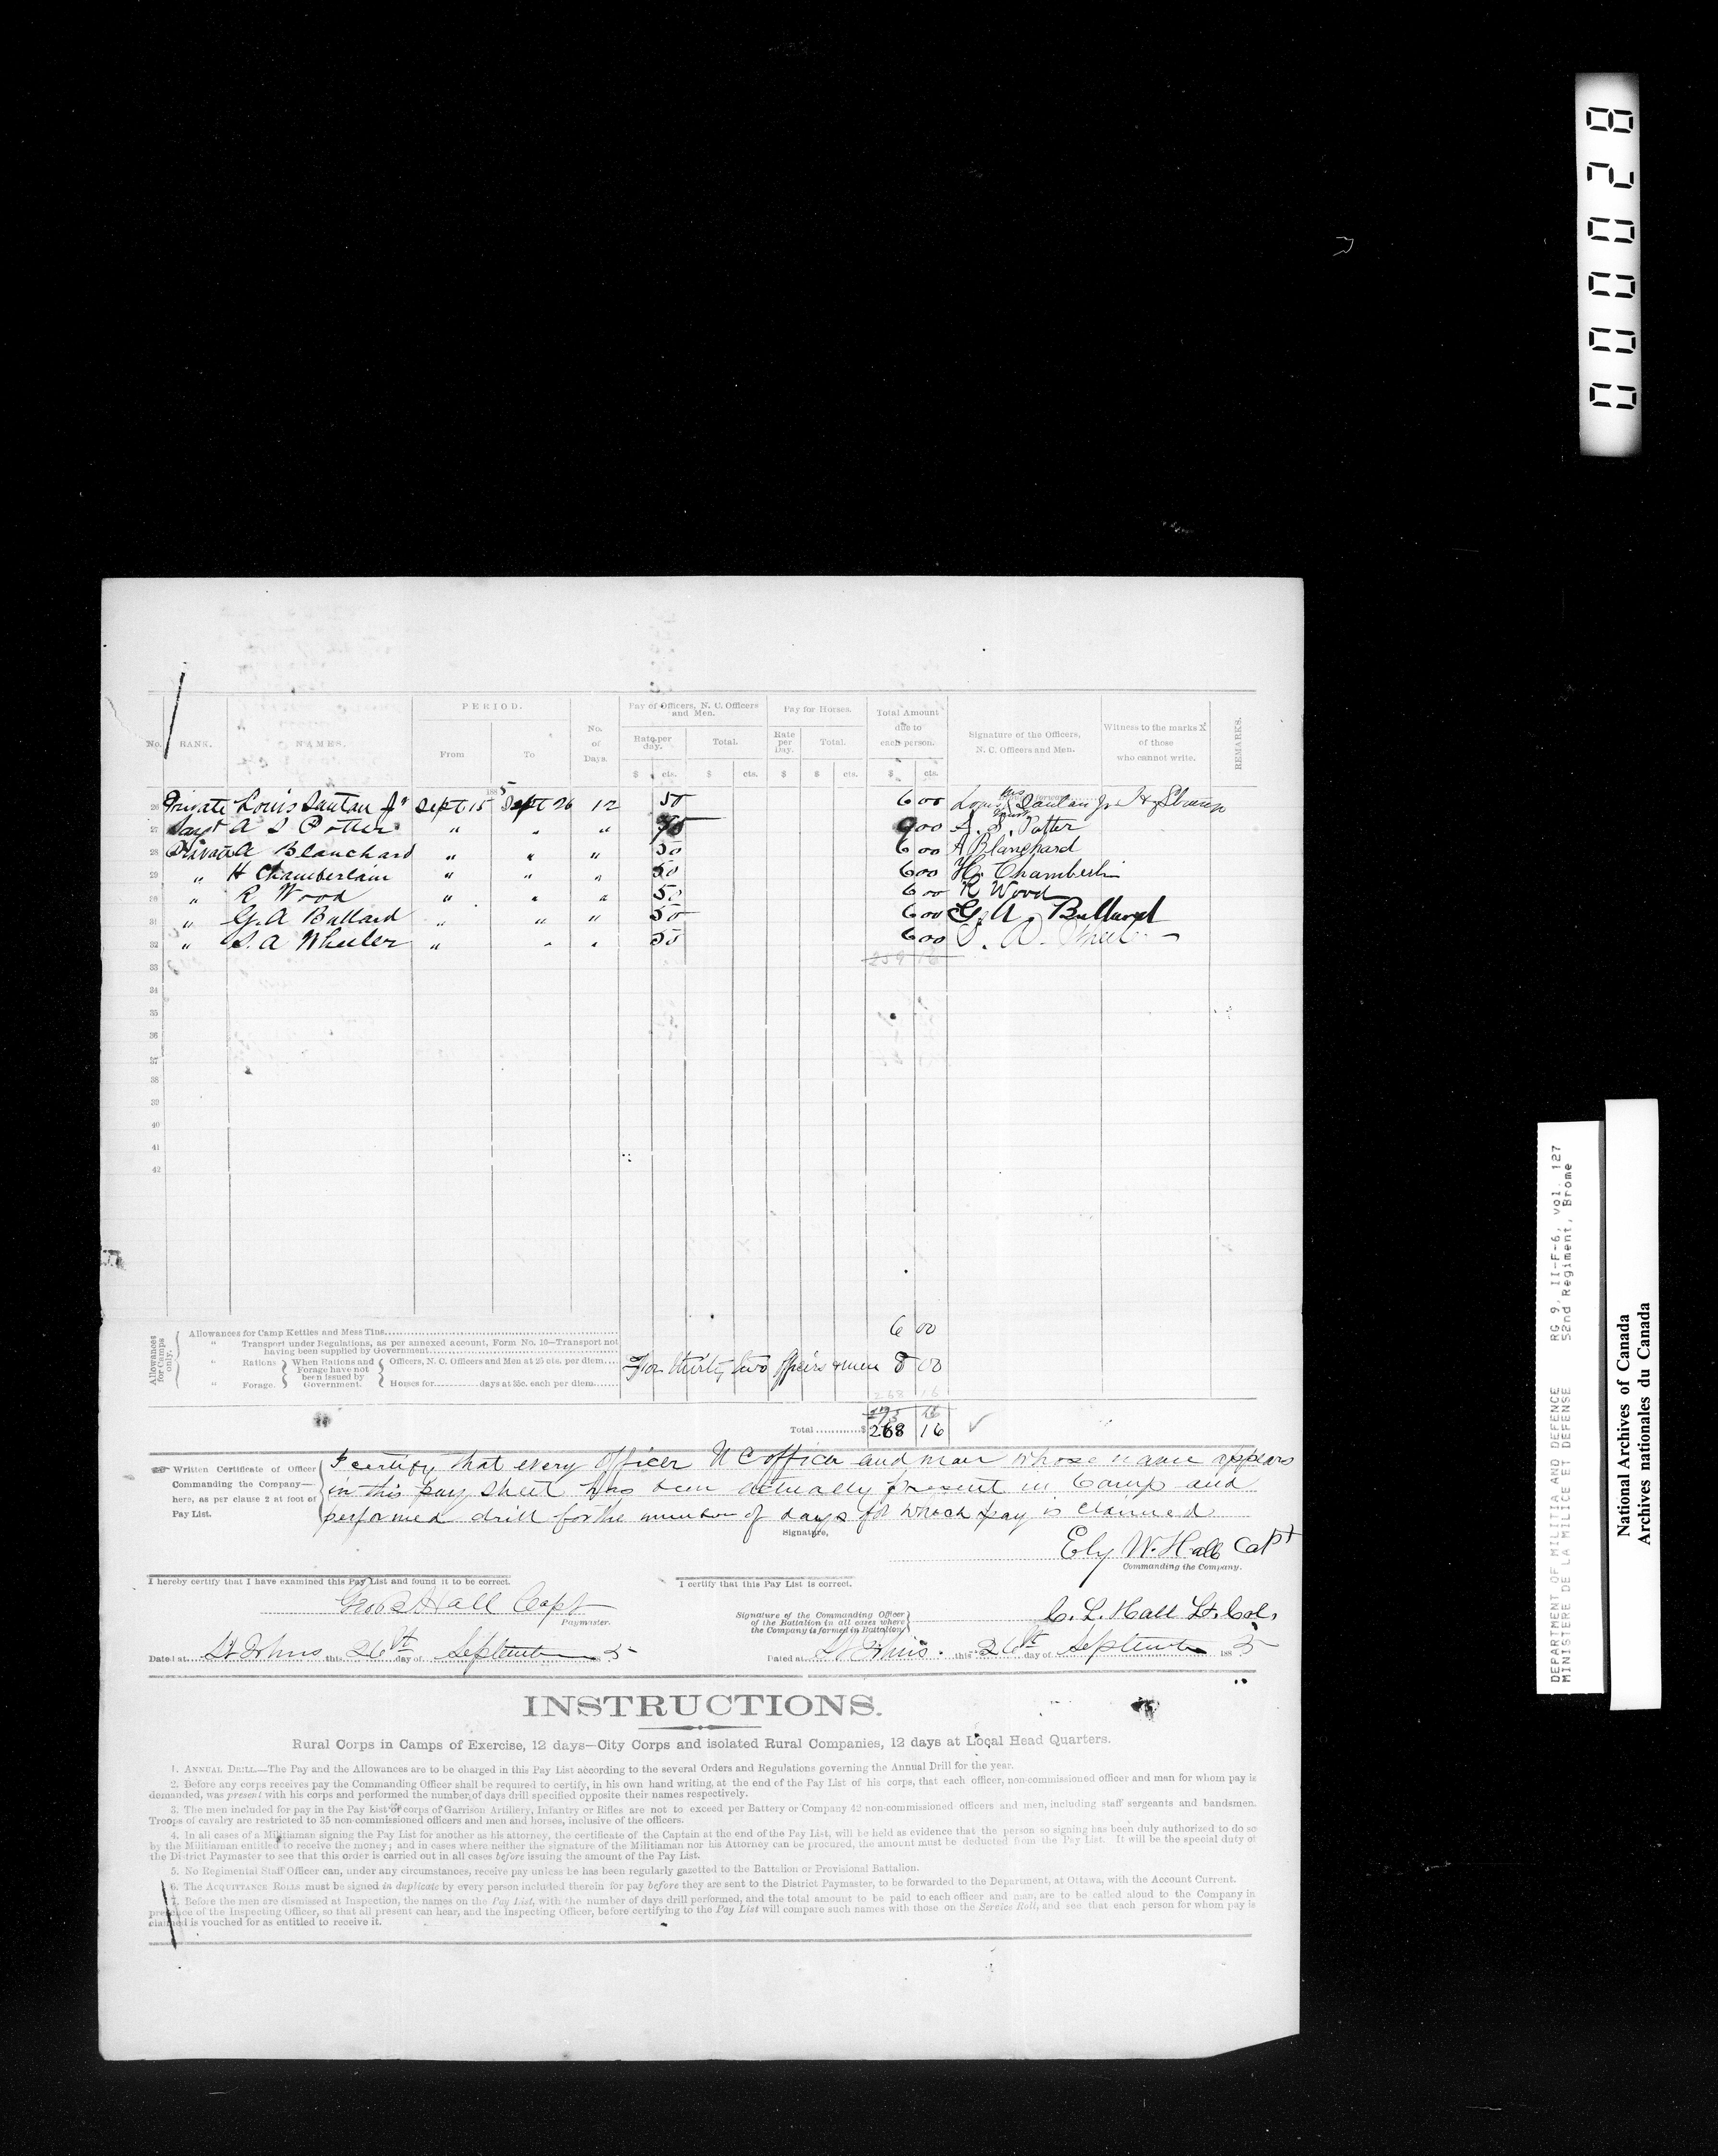 000028
PERIOD.
Pay of Officers, N. C. Officers and Men.
Pay for Horses.
Total Amount due to each person.
No. RANK. NAMES. From To No. of Days. Rate per day. Total. Rate per Day. Total. Signature of the Officers, N. C. Officers and Men. Witness to the marks X of those who cannot write. REMARKS.
$ cts. $ cts. $ $ cts. $ cts.
1885
26 Private Louis Jr Sept 15 Sept 26 12 50 6 00 Louis his Jr
27 Sargt A S Potter " " " 75 9 00 A. S. Potter
28 Private A Blanchard " " " 50 6 00 A Blanchard
29 " H Chamberlain " " " 50 6 00 H. Chamberlin
30 " R Wood " " " 50 6 00 R Wood
31 " G. A Bullard " " " 50 6 00 G. A. Bullard
32 " S. A Wheeler " " " 50 6 00 S. A. Wheeler
33 259 16
34
35
36
37
38
39
40
41
42
Allowances for Camps only.
Allowances for Camp Kettles and Mess Tins 6 00
" Transport under Regulations, as per annexed account, Form No. 10—Transport not having been supplied by Government
" Rations } When Rations and Forage have not been issued by Government. { Officers, N. C. Officers and Men at 25 cts. per diem For thirty two officers & men 8 00
" Forage. Horses for days at 35c. each per diem
268 16
Total $ 268 16
Written Certificate of Officer Commanding the Company—here, as per clause 2 at foot of Pay List.
I certify that every officer N C officer and man whose name appears
in this pay sheet has been actually present in Camp and
performed drill for the number of days for which pay is claimed
Signature,
Ely W. Hall Capt
Commanding the Company.
I hereby certify that I have examined this Pay List and found it to be correct.
I certify that this Pay List is correct.
Hall Capt
Paymaster.
Signature of the Commanding Officer of the Battalion in all cases where the Company is formed in Battalion
C. L. Hall Lt. Col.
Dated at St Johns this 26th day of September 5
Dated at St Johns. this 26th day of September 1885
INSTRUCTIONS.
Rural Corps in Camps of Exercise, 12 days—City Corps and isolated Rural Companies, 12 days at Local Head Quarters.
1. ANNUAL DRILL.—The Pay and the Allowances are to be charged in this Pay List according to the several Orders and Regulations governing the Annual Drill for the year.
2. Before any corps receives pay the Commanding Officer shall be required to certify, in his own hand writing, at the end of the Pay List of his corps, that each officer, non-commissioned officer and man for whom pay is
demanded, was present with his corps and performed the number of days drill specified opposite their names respectively.
3. The men included for pay in the Pay List of corps of Garrison Artillery, Infantry or Rifles are not to exceed per Battery or Company 42 non-commissioned officers and men, including staff sergeants and bandsmen.
Troops of cavalry are restricted to 35 non-commissioned officers and men and horses, inclusive of the officers.
4. In all cases of a Militiaman signing the Pay List for another as his attorney, the certificate of the Captain at the end of the Pay List, will be held as evidence that the person so signing has been duly authorized to do so
by the Militiaman entitled to receive the money; and in cases where neither the signature of the Militiaman nor his Attorney can be procured, the amount must be deducted from the Pay List. It will be the special duty of
the District Paymaster to see that this order is carried out in all cases before issuing the amount of the Pay List.
5. No Regimental Staff Officer can, under any circumstances, receive pay unless he has been regularly gazetted to the Battalion or Provisional Battalion.
6. The ACQUITTANCE ROLLS must be signed in duplicate by every person included therein for pay before they are sent to the District Paymaster, to be forwarded to the Department, at Ottawa, with the Account Current.
7. Before the men are dismissed at Inspection, the names on the Pay List, with the number of days drill performed, and the total amount to be paid to each officer and man, are to be called aloud to the Company in
presence of the Inspecting Officer, so that all present can hear, and the Inspecting Officer, before certifying to the Pay List will compare such names with those on the Service Roll, and see that each person for whom pay is
claimed is vouched for as entitled to receive it.
DEPARTMENT OF MILITIA AND DEFENCE RG 9, II-F-6, vol. 127
MINISTERE DE LA MILICE ET DEFENSE 52nd Regiment, Brome
National Archives of Canada
Archives nationales du Canada